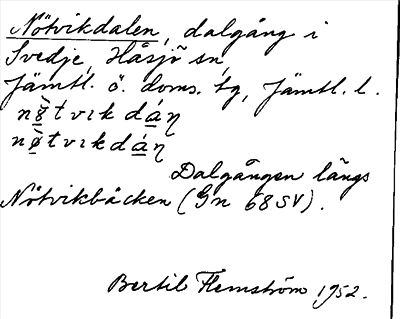 Nötvikdalen, dalgång i
Svedje, Håsjö sn,
Jämtl. ö. doms. tg, Jämtl. l.
nø̀tvikdáɳ
nø̀tvikdáɳ
Dalgången längs
Nötvikbäcken (Gn 68SV).
Bertil Flemström 1952.